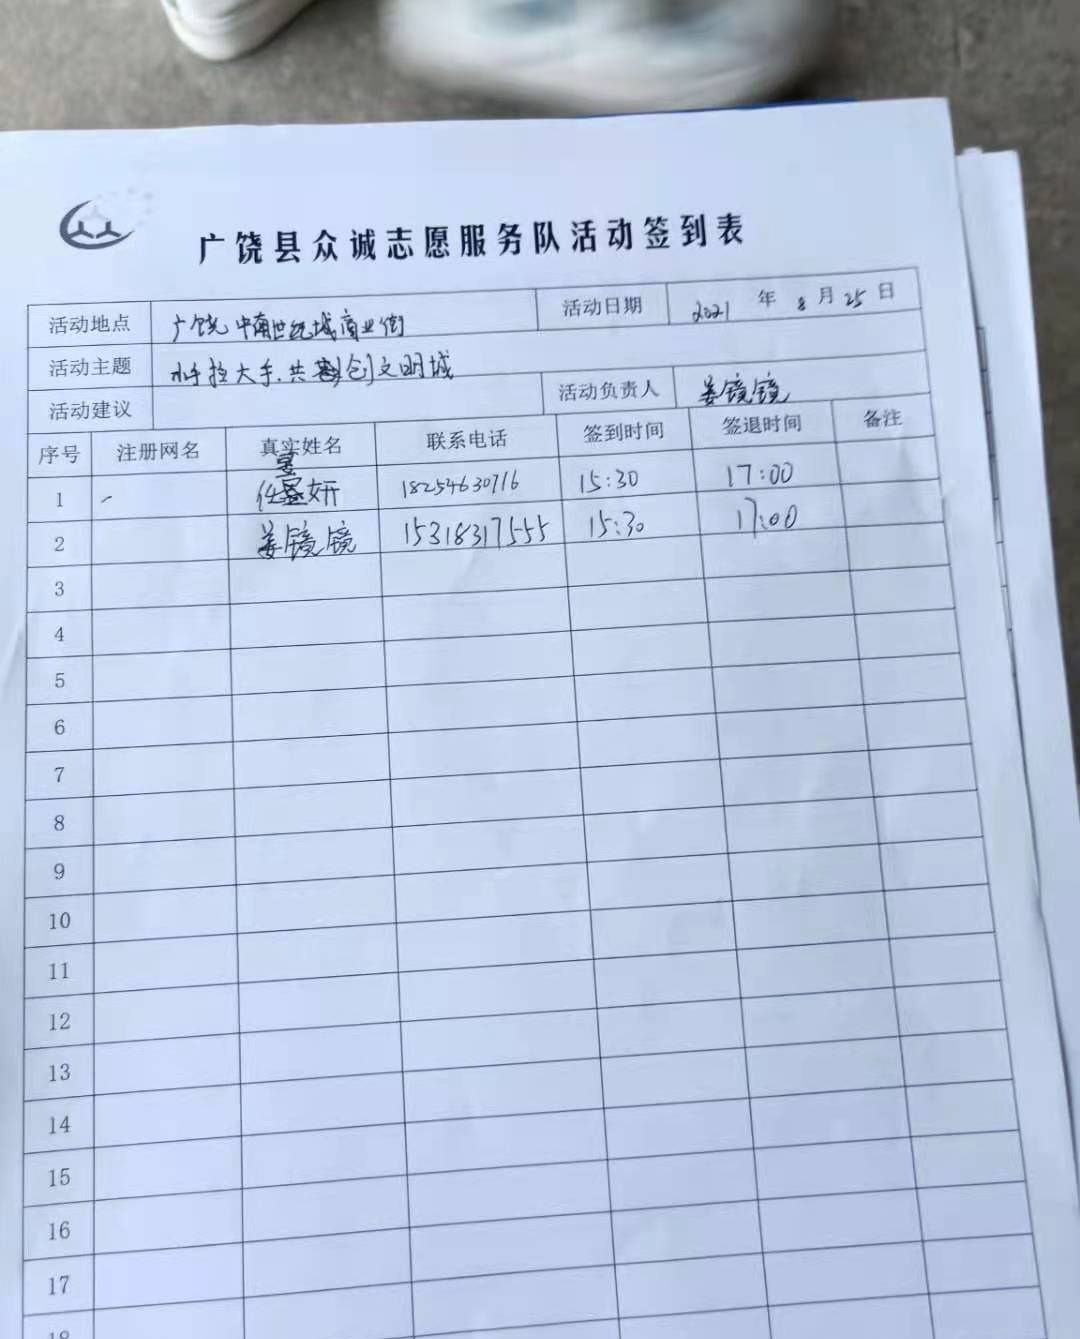 广饶县众诚志愿服务队活动签到表
活动地点 广饶中南世纪城商业街 活动日期 2021 年 8 月 25 日
活动主题 小手拉大手.共创文明城
活动建议 活动负责人 姜镜镜
序号 注册网名 真实姓名 联系电话 签到时间 签退时间 备注
1 任昱妍 18254630716 15:30 17:00
2 姜镜镜 15318317555 15:30 17:00
3
4
5
6
7
8
9
10
11
12
13
14
15
16
17
18